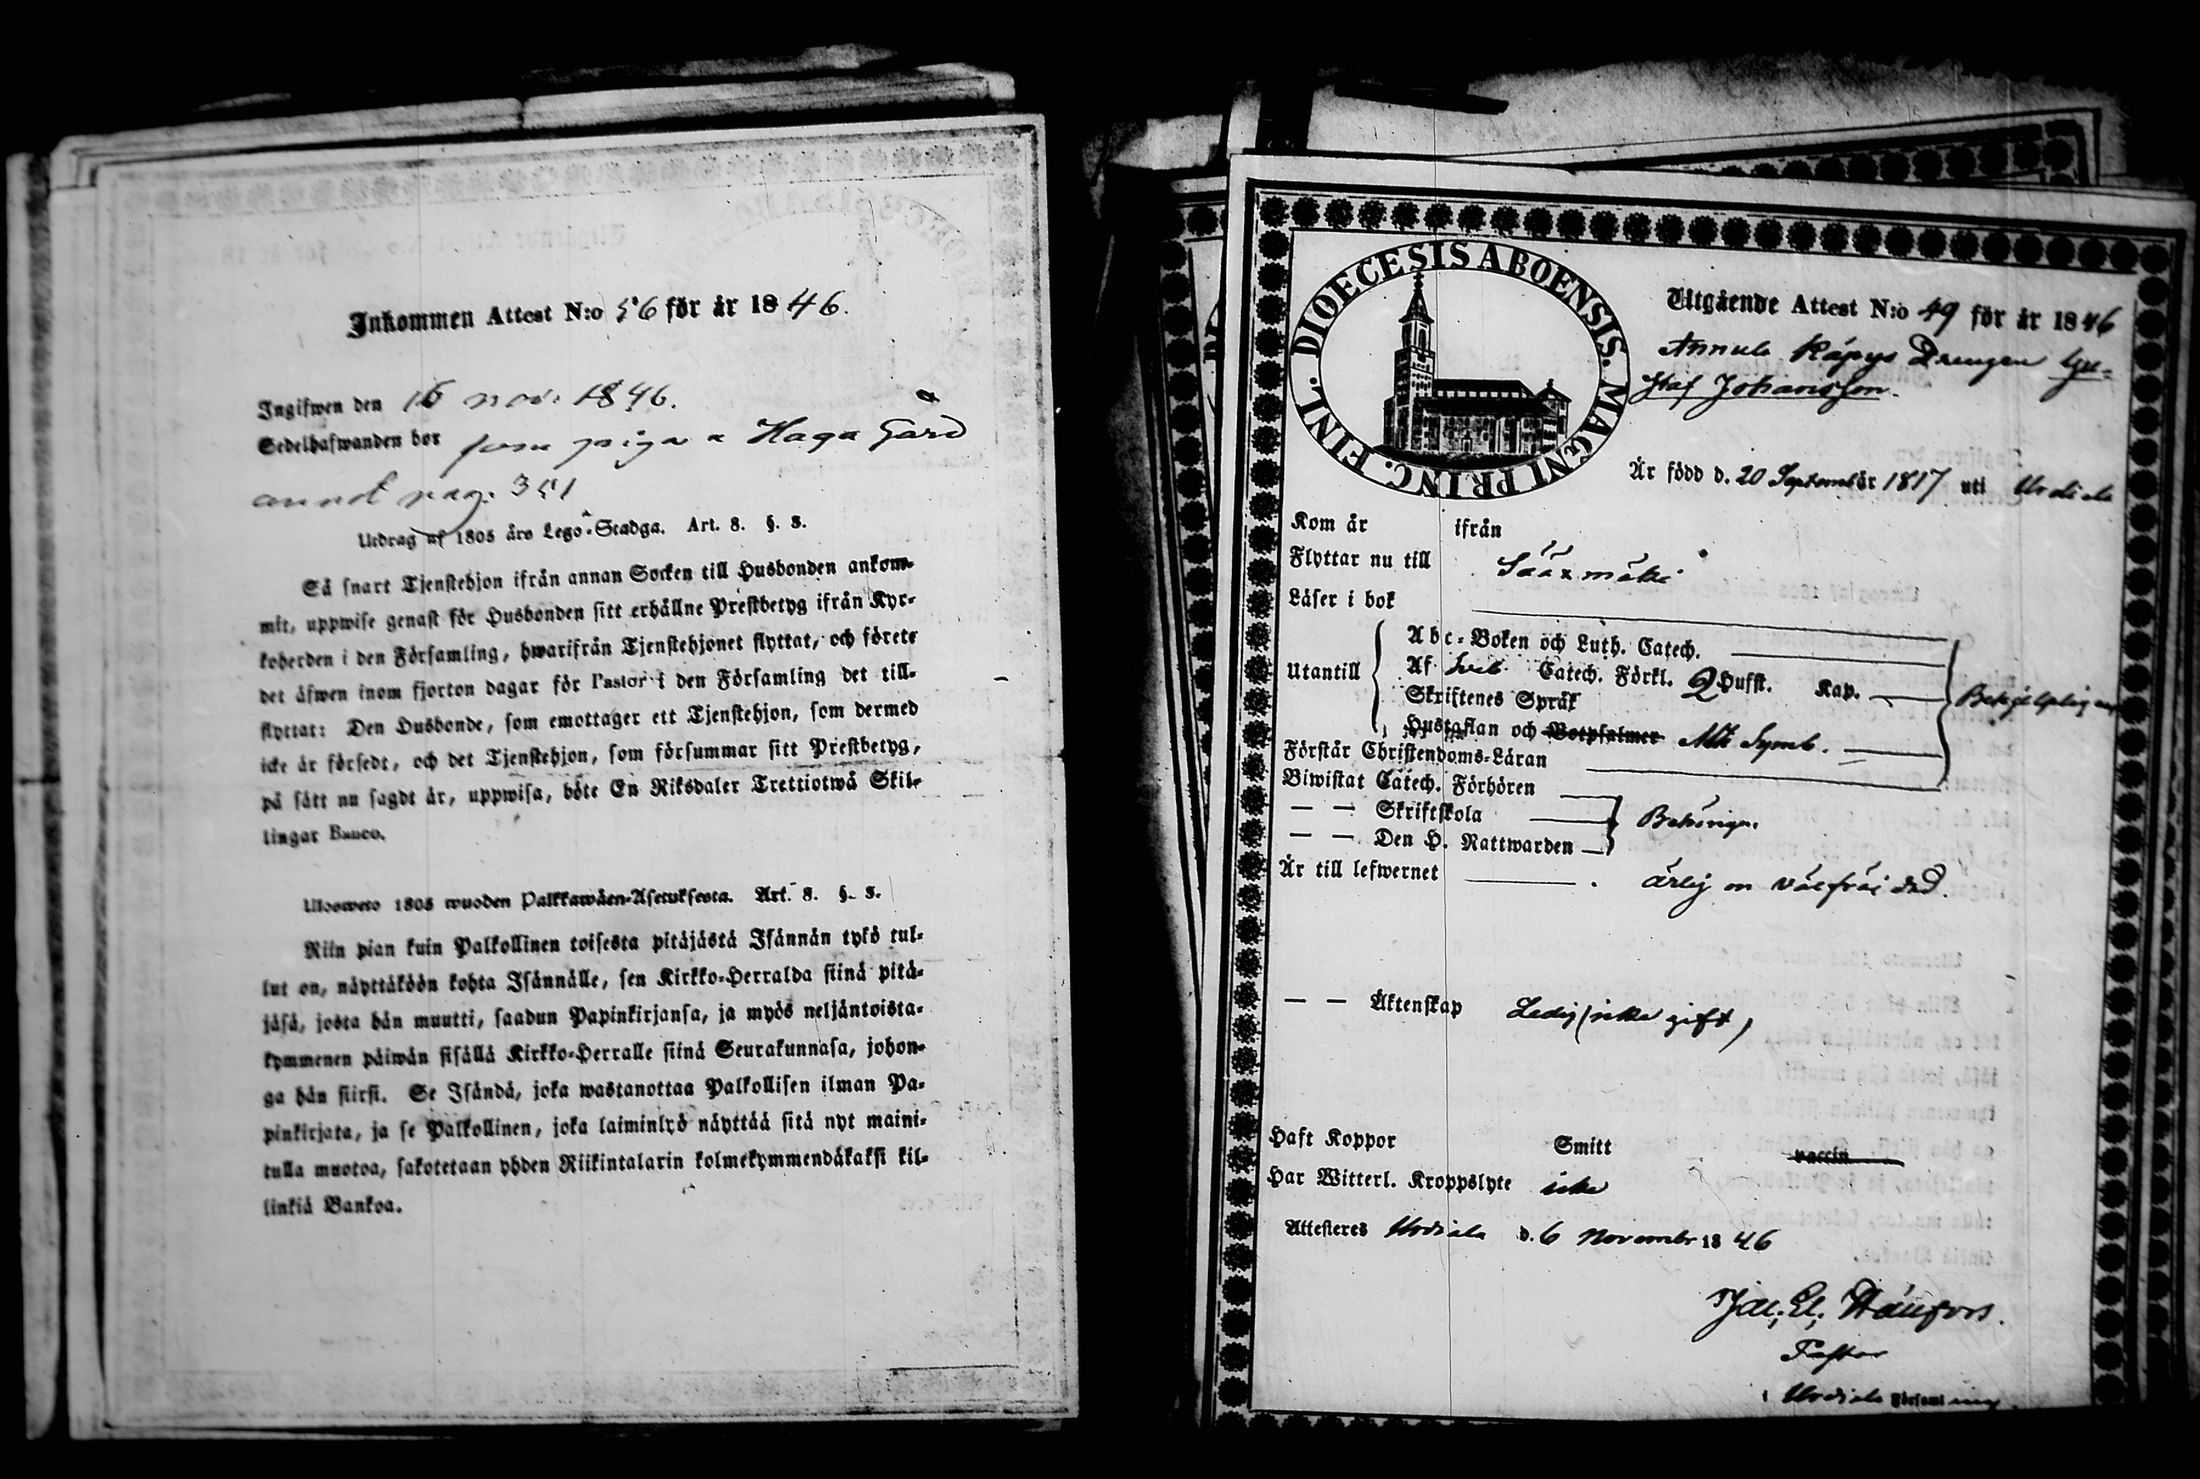 Inkommen Attest N:o 56 för år 1846.
Ingifwen den 16 nov. 1846.
Sedelhafwanden bor som piga a Haga Gård
annot pag. 351
Utdrag af 1805 års Lego-Stadga. Art. 8. §. 3.
Så snart Tjenstehjon ifrån annan Socken till Husbonden ankom-
mit, uppwise genast för Husbonden sitt erhållne Prestbetyg ifrån Kyr-
koherden i den Församling, hwarifrån Tjenstehjonet flyttat, och förete
det äfwen inom fjorton dagar för Pastor i den Församling det till-
flyttat: Den Husbonde, som emottager ett Tjenstehjon, som dermed
icke är försedt, och det Tjenstehjon, som försummar sitt Prestbetyg,
på sätt nu sagdt är, uppwisa, böte En Riksdaler Trettiotwå Skil-
lingar Banco.
Ulosweto 1805 wuoden Palkkawäen-Asetuksesta. Art. 8. §. 3.
Niin pian kuin Palkollinen toisesta pitäjästä Isännän tykö tul-
lut on, näyttäköön kohta Isännälle, sen Kirkko-Herralda siinä pitä-
jäsä, josta hän muutti, saadun Papinkirjansa, ja myös neljäntoista-
kymmenen päiwän sisällä Kirkko-Herralle siinä Seurakunnasa, johon-
ga hän siirsi. Se Isändä, joka wastanottaa Palkollisen ilman Pa-
pinkirjata, ja se Palkollinen, joka laiminlyö näyttää sitä nyt maini-
tulla muotoa, sakotetaan yhden Riikintalarin kolmekymmendäkaksi kil-
linkiä Bankoa.
DIOECESIS ABOENSIS. MAGNI PRINC. FINL.
Utgående Attest N:o 49 för år 1846
Annula Räpys Drengen Gu-
staf Johansson.
Är född d. 20 September 1817 uti Urdiala
Kom år ifrån
Flyttar nu till Sääxmäki
Läser i bok
Utantill
Abc-Boken och Luth. Catech.
Af Sveb. Catech. Förkl. 2 Hufst. Kap.
Skriftenes Språk
Hustaflan och Botpsalmer Symb.
Förstår Christendoms-Läran
Biwistat Catech. Förhören
— — Skriftskola
— — Den H. Nattwarden
Är till lefwernet ärlig
— — Äktenskap Ledig (icke gift)
Haft Koppor Smitt vaccin
Har Witterl. Kroppslyte icke
Attesteres Urdiala d. 6 November 1846
Pastor
i Urdiala Församling